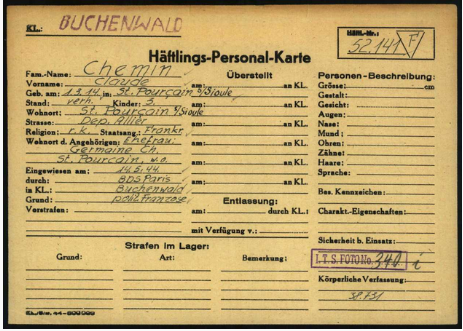 KL.: BUCHENWALD
Häftl.-Nr.:
52.141 F
Häftlings-Personal-Karte
Fam.-Name: Chemin
Vorname: Claude
Geb. am: 1.3.14 in: St. Pourçain s/Sioule
Stand: verh. Kinder: 3.
Wohnort: St. Pourçain s/Sioule
Strasse: Dep. Allier
Religion: r.k. Staatsang.: Frankr.
Wohnort d. Angehörigen: Ehefrau:
Germaine Ch.
St. Pourçain, w.o.
Eingewiesen am: 14.5.44.
durch: BDS Paris
in KL.: Buchenwald
Grund: polit. Franzose
Vorstrafen:
Überstellt
am: an KL.
am: an KL.
am: an KL.
am: an KL.
am: an KL.
am: an KL.
Entlassung:
am: durch KL.:
mit Verfügung v.:
Personen-Beschreibung:
Grösse: cm
Gestalt:
Gesicht:
Augen:
Nase:
Mund:
Ohren:
Zähne:
Haare:
Sprache:
Bes. Kennzeichen:
Charakt.-Eigenschaften:
Sicherheit b. Einsatz:
I.T.S. FOTO No. 340 i
Körperliche Verfassung:
Strafen im Lager:
Grund: Art: Bemerkung: